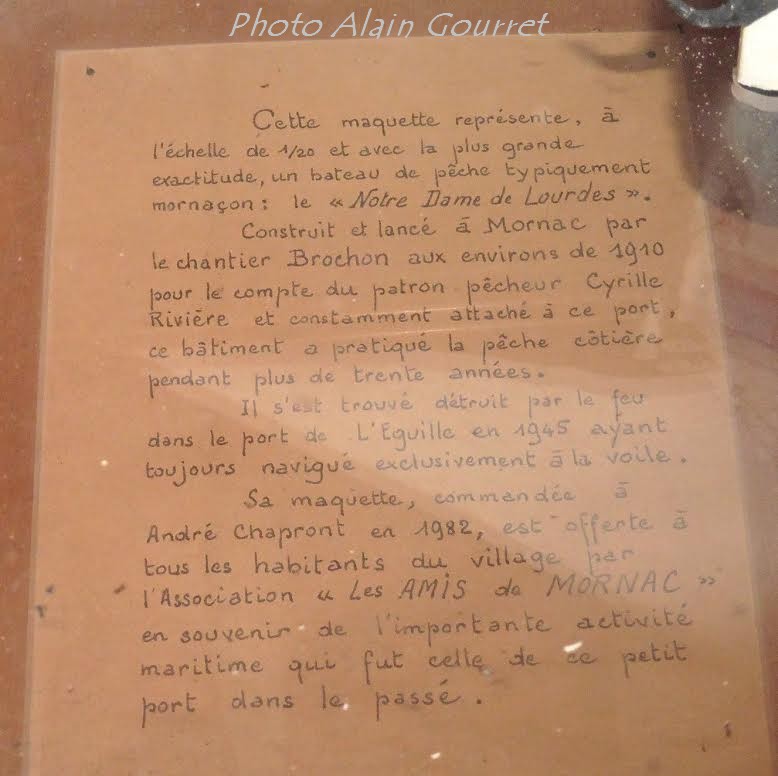 Photo Alain Gourret
Cette maquette représente, à
l'échelle de 1/20 et avec la plus grande
exactitude, un bateau de pêche typiquement
mornaçon : le « Notre Dame de Lourdes ».
Construit et lancé à Mornac par
le chantier Brochon aux environs de 1910
pour le compte du patron pêcheur Cyrille
Rivière et constamment attaché à ce port,
ce bâtiment a pratiqué la pêche côtière
pendant plus de trente années.
Il s'est trouvé détruit par le feu
dans le port de L'Eguille en 1945 ayant
toujours navigué exclusivement à la voile.
Sa maquette, commandée à
André Chapront en 1982, est offerte à
tous les habitants du village par
l'Association « Les AMIS de MORNAC »
en souvenir de l'importante activité
maritime qui fut celle de ce petit
port dans le passé.